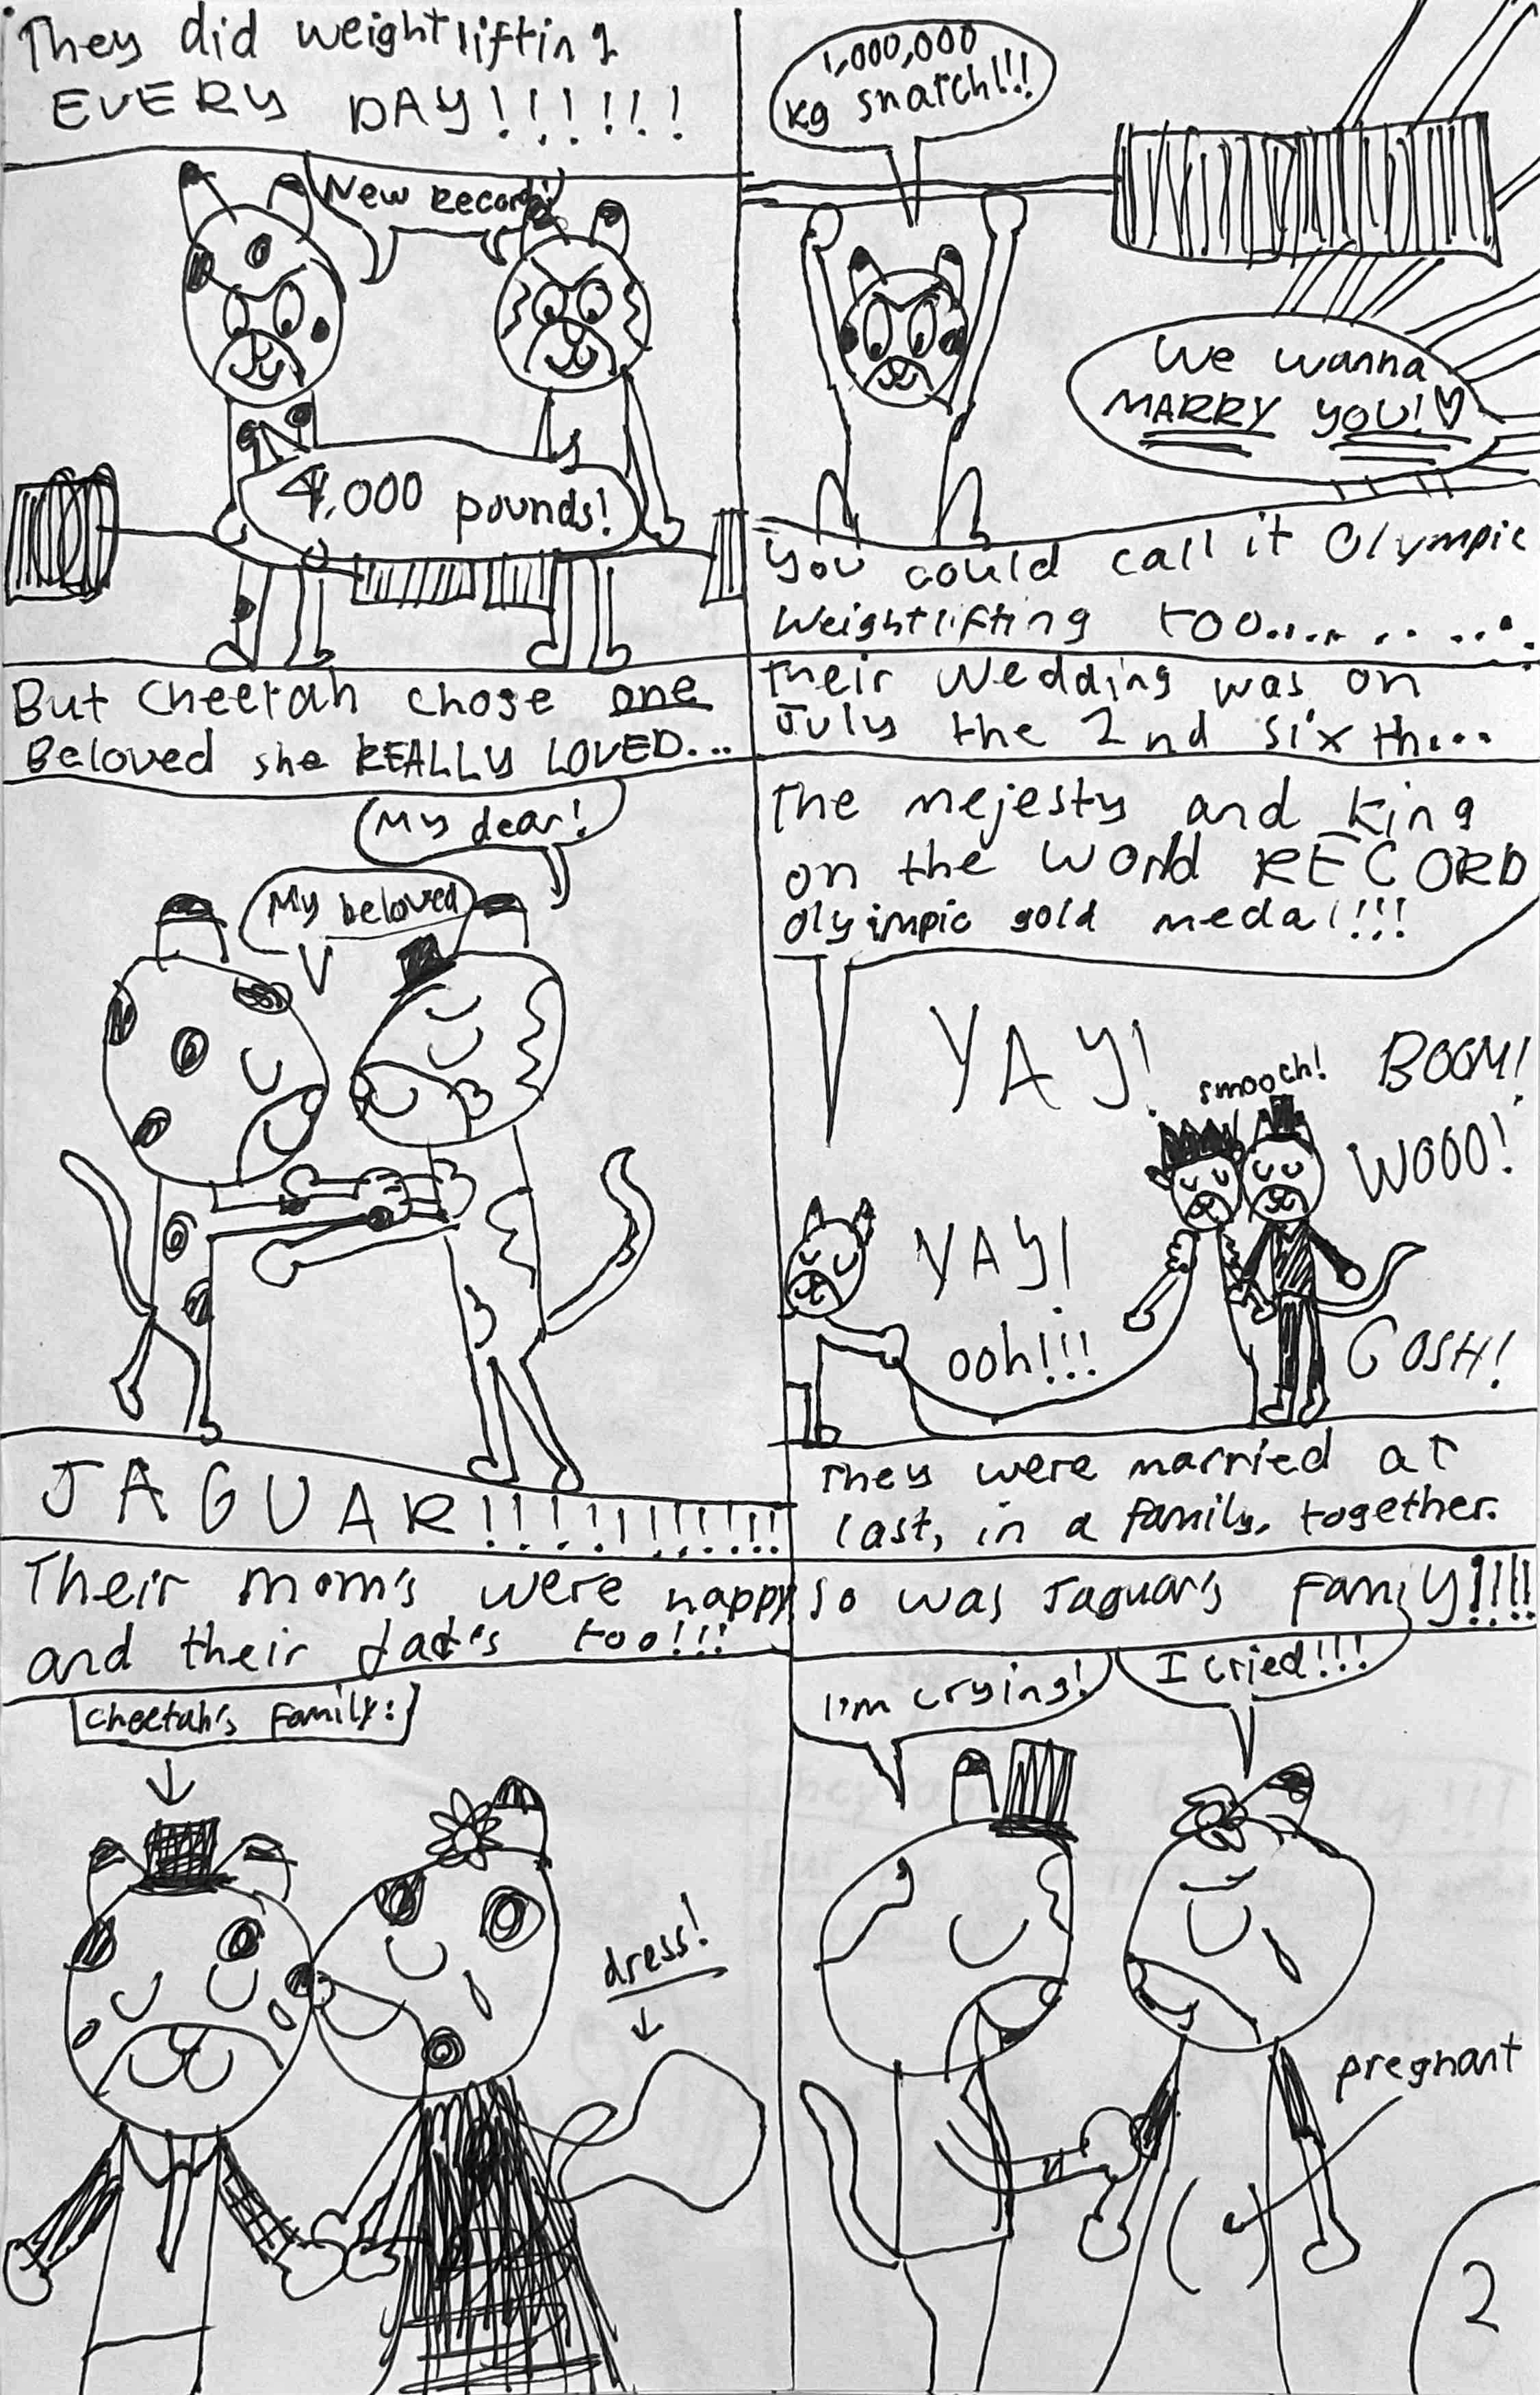 They did weightlifting
EVERY DAY!!!!!!
New Record!
4,000 pounds!
1,000,000
kg snatch!!!
We wanna
MARRY YOU!♡
You could call it Olympic
Weightlifting too..........
But Cheetah chose one
Beloved she REALLY LOVED...
My dear!
My beloved
JAGUAR!!!!!!!!!!!!!
Their Wedding was on
July the 2nd sixth...
The mejesty and king
on the World RECORD
Olyimpic gold medal!!!
YAY!
smooch!
BOOM!
WOOO!
YAY!
ooh!!!
GOSH!
They were married at
last, in a family, together.
Their mom's were happy
and their dad's too!!!
Cheetah's Family:
dress!
So was Jaguar's Family!!!!
I'm crying!
I cried!!!
pregnant
2